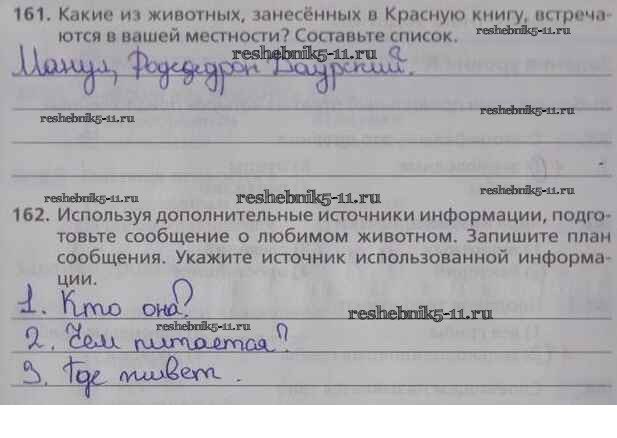 161. Какие из животных, занесённых в Красную книгу, встреча-
ются в вашей местности? Составьте список.
reshebnik5-11.ru
reshebnik5-11.ru
Манул, Рододедрон Даурский.
reshebnik5-11.ru
reshebnik5-11.ru
reshebnik5-11.ru
reshebnik5-11.ru
reshebnik5-11.ru
162. Используя дополнительные источники информации, подго-
товьте сообщение о любимом животном. Запишите план
сообщения. Укажите источник использованной информа-
ции.
1. Кто она?
reshebnik5-11.ru
reshebnik5-11.ru
2. Чем питается?
3. Где живет.